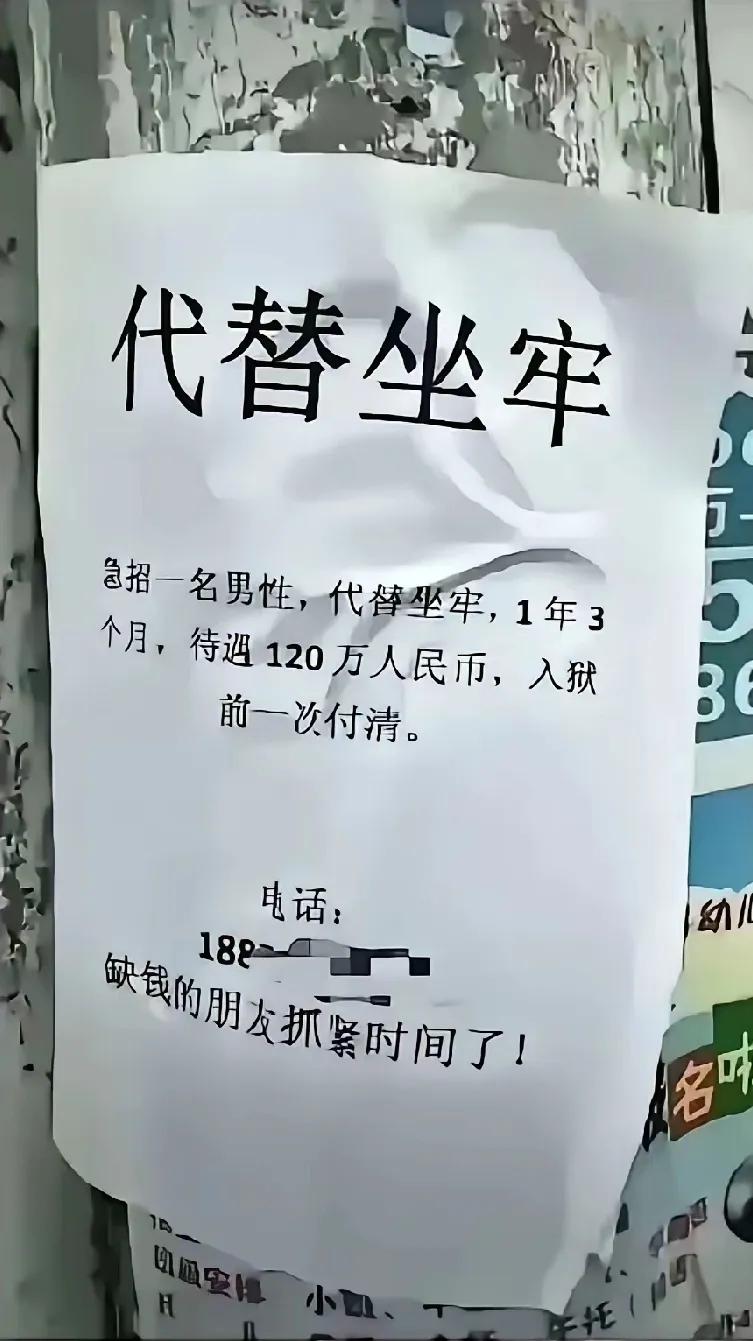 代替坐牢
急招一名男性，代替坐牢，1年3
个月，待遇120万人民币，入狱
前一次付清。
电话：
188
缺钱的朋友抓紧时间了！
幼儿
名
86